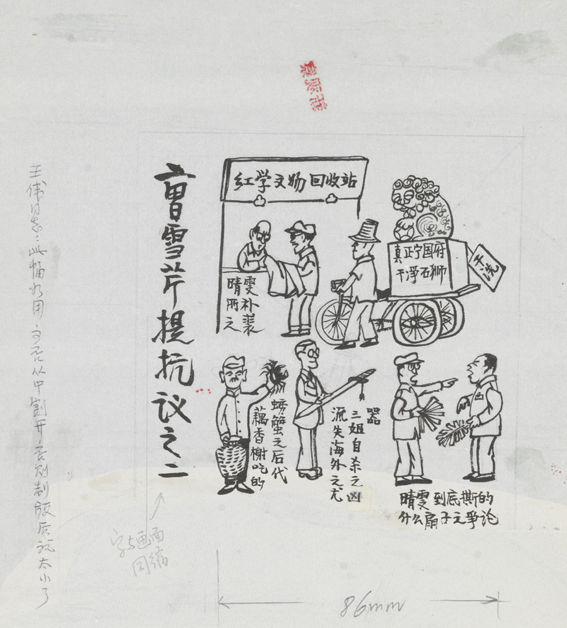 红学文物回收站
曹雪芹提抗议之二
晴雯
所补
之裘
真正宁国府
干净石狮
干洗
藕香榭吃的
螃蟹之后代
流失海外之尤
三姐自杀之凶
器
晴雯到底撕的
什么扇子之争论
王伟同志：此幅如用，可否从中割开，否则制版后就太小了
字与画面
同缩
86mm